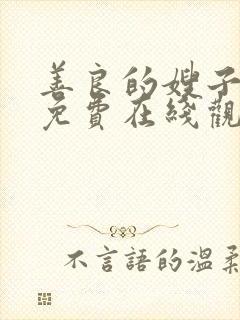 善良的嫂子
免費在綫觀
不言語的温柔